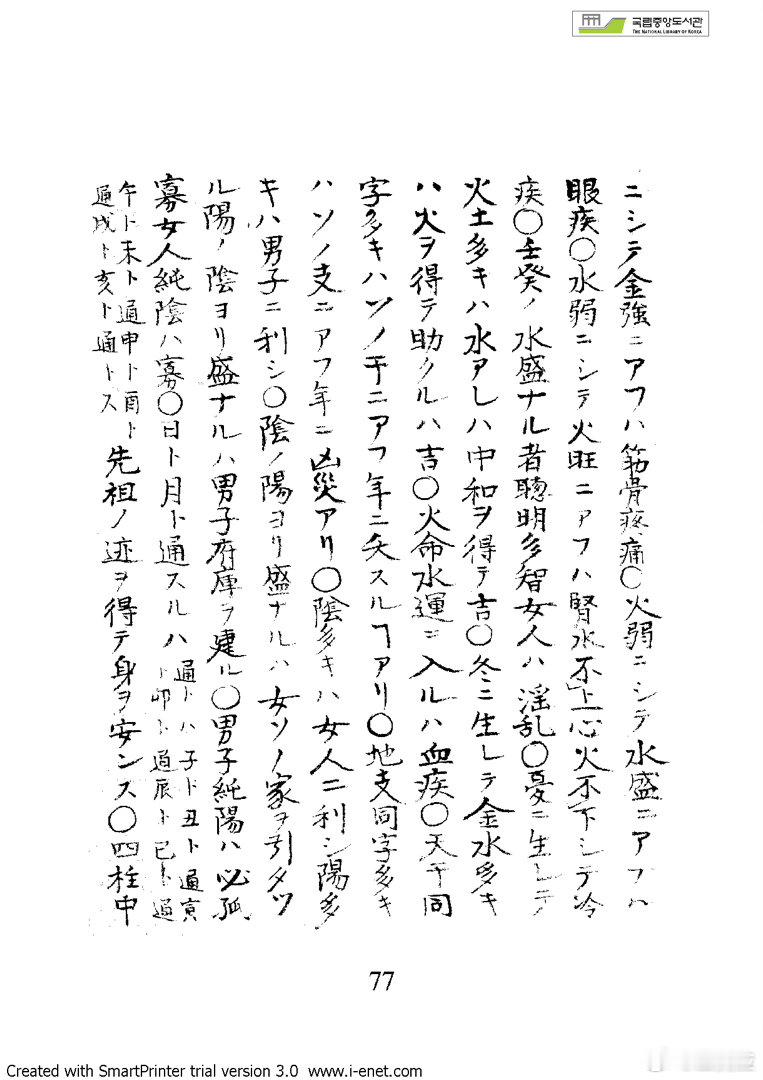 국립중앙도서관
THE NATIONAL LIBRARY OF KOREA
ニシテ金強ニアフハ筋骨疼痛○火弱ニシテ水盛ニアフハ
眼疾○水弱ニシテ火旺ニアフハ腎水不上心火不下シテ冷
疾○壬癸ノ水盛ナル者聰明多智女人ハ淫乱○憂ニ生レテ
火土多キハ水アレハ中和ヲ得テ吉○冬ニ生レテ金水多キ
ハ火ヲ得テ助クルハ吉○火命水運ニ入ルハ血疾○天干同
字多キハソノ干ニアフ年ニ夭スルヿアリ○地支同字多キ
ハソノ支ニアフ年ニ凶災アリ○陰多キハ女人ニ利シ陽多
キハ男子ニ利シ○陰ノ陽ヨリ盛ナルハ女ソノ家ヲ引タツ
ル陽ノ陰ヨリ盛ナルハ男子府庫ヲ建ル○男子純陽ハ必孤
寡女人純陰ハ寡○日ト月ト通スルハ通トハ子ト丑ト通寅
ト卯ト通辰ト巳ト通
午ト未ト通申ト酉ト
通戌ト亥ト通トス先祖ノ迹ヲ得テ身ヲ安ンス○四柱中
77
Created with SmartPrinter trial version 3.0 www.i-enet.com